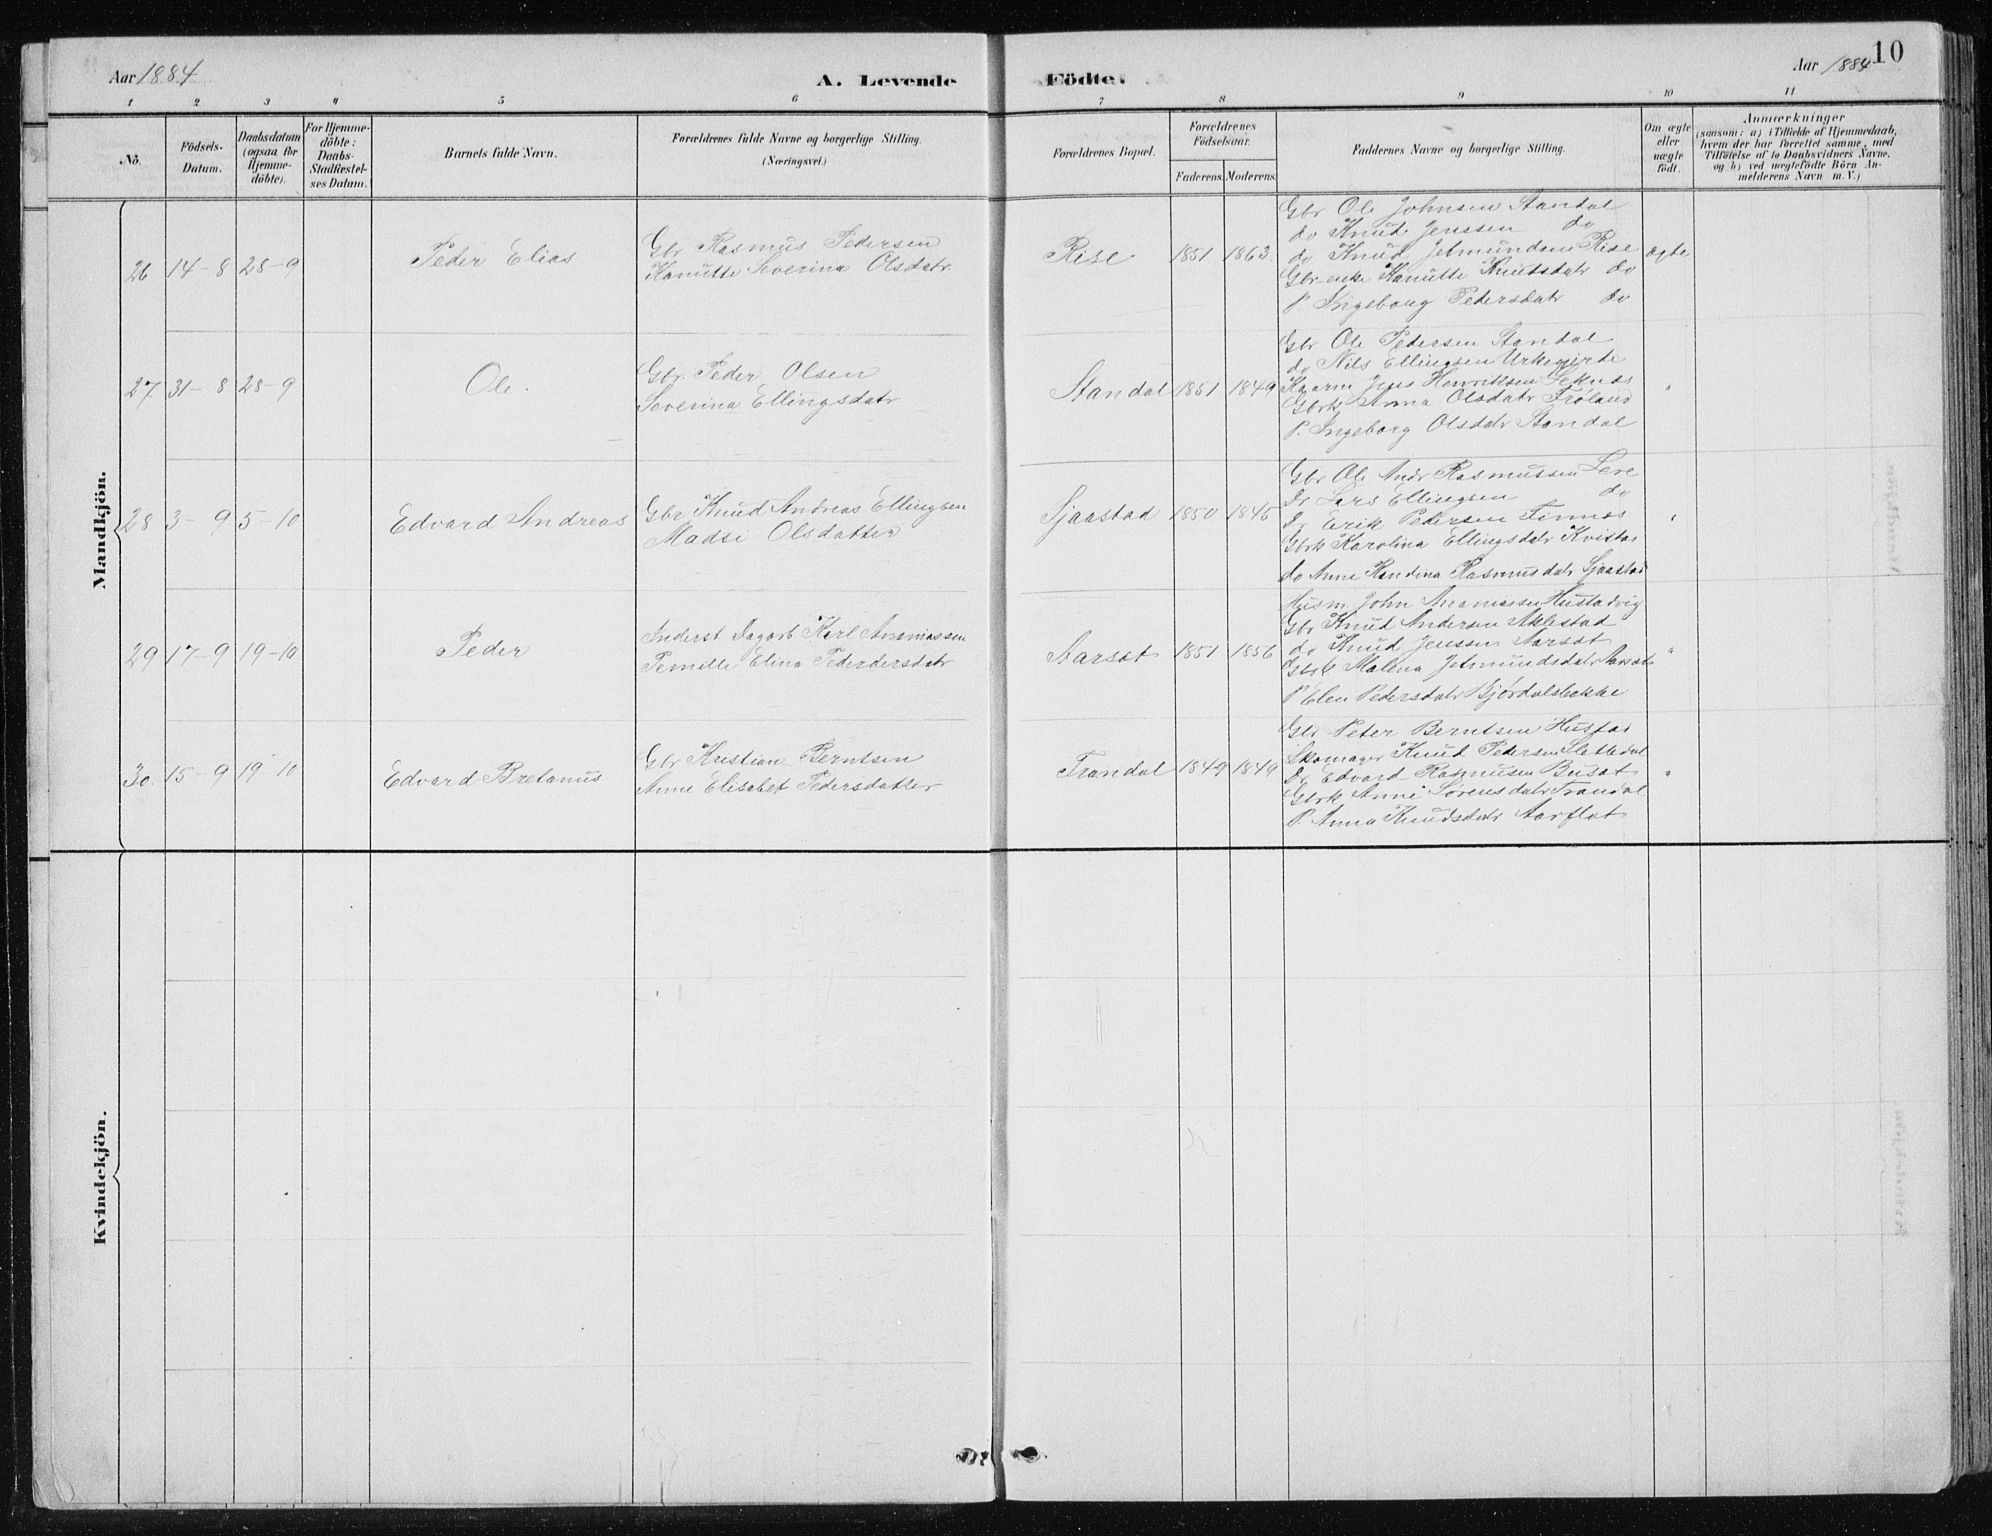 10
Aar 1884
A. Levende
Födte.
Aar 1884
1 2 3 4 5 6 7 8 9 10 11
No.
Födsels-
Datum.
Daabsdatum
(ogsaa for
Hjemme-
döbte).
For Hjemme-
döbte:
Daabs-
Stadfæstel-
ses Datum.
Barnets fulde Navn.
Forældrenes fulde Navne og borgerlige Stilling.
(Næringsvei.)
Forældrenes Bopæl.
Forældrenes
Födselsaar.
Faderens. Moderens.
Faddernes Navne og borgerlige Stilling.
Om ægte
eller
uægte
född.
Anmærkninger
(saasom: a) i Tilfælde af Hjemmedaab,
hvem der har forrettet samme, med
Tilföielse af to Daabsvidners Navne,
og b) ved uægtefödte Börn An-
melderens Navn m. V.)
Mandkjön.
26 14-8 28-9
Peder Elias
Gbr Rasmus Pedersen
Hanutte Severina Olsdatr
Rise 1851 1863
Gbr Ole Johnsen Standal
do Knud Jenssen do
do Knud Jetmundsen Rise
Gbr enke Hanutte Knutsdatr do
P. Ingeborg Pedersdatr do
ægte
27 31-8 28-9
Ole.
Gbr. Peder Olsen
Severina Ellingsdatr
Standal 1851 1849
Gbr Ole Pedersen Standal
do Nils Ellingsen Urkegjerde
Jens Henriksen Leknæs
Gbrk Anna Olsdatr
P. Ingeborg Olsdatr Standal
"
28 3-9 5-10
Edvard Andreas
Gbr Knud Andreas Ellingsen
Madsi Olsdatter
Sjaastad 1850 1845
Gbr Ole Andr Rasmussen
Do Lars Ellingsen do
Do Erik Pedersen Finnes
Gbrk Karolina Ellingsdatr Kvistad
do Anne Rasmusdatr Sjaastad
"
29 17-9 19-10
Peder
Inderst Dagarb Karl Ananiassen
Pernille Elina Pedersdatr
Aarsæt 1851 1856
Husm John Ananiassen Hustadvig
Gbr Knud Andersen Aklestad
do Knud Jenssen Aarsæt
Gbrk Malena Jetmundsdatr Aarsæt
P Elen Pedersdatr Bjørdalsbakke
"
30. 15-9 19-10
Edvard Bretanus
Gbr Kristian Berntsen
Anne Elisabet Pedersdatter
Trandal 1849 1849
Gbr Peter Berntsen Hustad
Skomager Knud Pedersen Slettedal
Do Edvard Rasmusen Busæt
Gbrk Anne Sørensdatr Trandal
P. Anna Knudsdatr Aarflot
"
Kvindekjön.